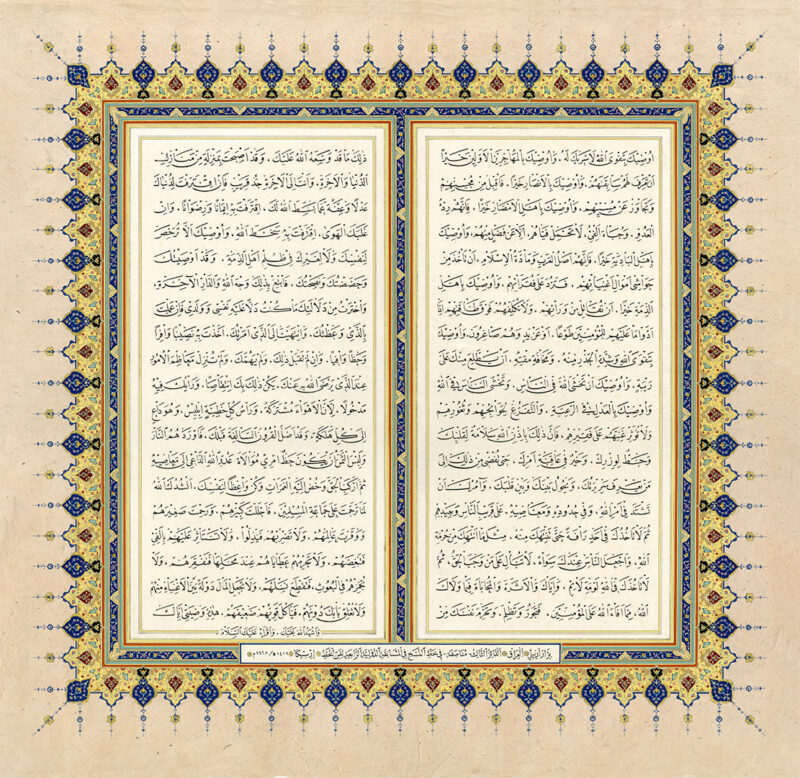 أوصيك بتقوى الله لا شريك له. وأوصيك بالمهاجرين الأولين خيرًا
أن تعرف لهم سابقتهم. وأوصيك بالأنصار خيرًا. فاقبل من محسنهم
وتجاوز عن مسيئهم. وأوصيك بأهل الأمصار خيرًا. فإنهم ردء
العدو. وجباة الفيء. لا تحمل فيأهم إلا عن فضل منهم. وأوصيك
بأهل البادية خيرًا. فإنهم أصل العرب ومادة الإسلام. أن تأخذ من
حواشي أموال أغنيائهم. فترد على فقرائهم. وأوصيك بأهل
الذمة خيرًا. أن تقاتل من ورائهم. ولا تكلفهم فوق طاقتهم إذا
أدوا ما عليهم للمؤمنين طوعًا. أو عن يد وهم صاغرون. وأوصيك
بتقوى الله وشدة الحذر منه. ومخافة مقته. أن يطلع منك على
ريبة. وأوصيك أن تخشى الله في الناس. ولا تخشى الناس في الله
وأوصيك بالعدل في الرعية. والتفرغ لحوائجهم وثغورهم
ولا تؤثر غنيهم على فقيرهم. فإن ذلك بإذن الله سلامة لقلبك
وحط لوزرك. وخير في عاقبة أمرك. حتى تفضي من ذلك إلى
من يعرف سريرتك. ويحول بينك وبين قلبك. وآمرك أن
تشتد في أمر الله. وفي حدوده ومعاصيه. على قريب الناس وبعيدهم
ثم لا تأخذك في أحد رأفة حتى تنتهك منه. مثل ما انتهك من حرمة
الله. واجعل الناس عندك سواء. لا تبال على من وجب الحق. ثم
لا تأخذك في الله لومة لائم. وإياك والأثرة والمحاباة فيما ولاك
الله. مما أفاء الله على المؤمنين. فتجور وتظلم. وتحرم نفسك من
ذلك ما قد وسعه الله عليك. وقد أصبحت بمنزلة من منازل
الدنيا والآخرة. وأنت إلى الآخرة جد قريب فإن اقترفت لدنياك
عدلا وعفة عما بسط الله لك. اقترفت به إيمانًا ورضوانًا. وإن
غلبك الهوى. اقترفت به سخط الله. وأوصيك ألا ترخص
لنفسك ولا لغيرك في ظلم أهل الذمة. وقد أوصيتك
وحضضتك ونصحتك. فابتغ بذلك وجه الله والدار الآخرة
واخترت من دلالتك ما كنت دالا عليه نفسي وولدي فإن عملت
بالذي وعظتك. وانتهيت إلى الذي أمرتك. أخذت به نصيبًا وافرًا
وحظًا وافيًا. وإن لم تقبل ذلك. ولم يهمك. ولم تنزل معاظم الأمور
عند الذي يرضى الله به عنك. يكن ذلك بك انتقاصًا. ورأيك فيه
مدخولا. لأن الأهواء مشتركة. ورأس كل خطيئة إبليس. وهو داع
إلى كل هلكة. وقد أضل القرون السالفة قبلك. فأوردهم النار
ولبئس الثمن أن يكون حظ امرئ موالاة عدو الله الداعي إلى معاصيه
ثم اركب الحق وخض إليه الغمرات وكن واعظًا لنفسك. أنشدك الله
لما ترحمت على جماعة المسلمين. فأجللت كبيرهم. ورحمت صغيرهم
ووقرت عالمهم. ولا تضربهم فيذلوا. ولا تستأثر عليهم بالفيء
فتغضبهم. ولا تحرمهم عطاياهم عند محلها فتفقرهم. ولا
تجمرهم في البعوث. فتقطع نسلهم. ولا تجعل المال دولة بين الأغنياء منهم
ولا تغلق بابك دونهم. فيأكل قويهم ضعيفهم. هذه وصيتي إياك
وأشهد الله عليك. وأقرأ عليك السلام